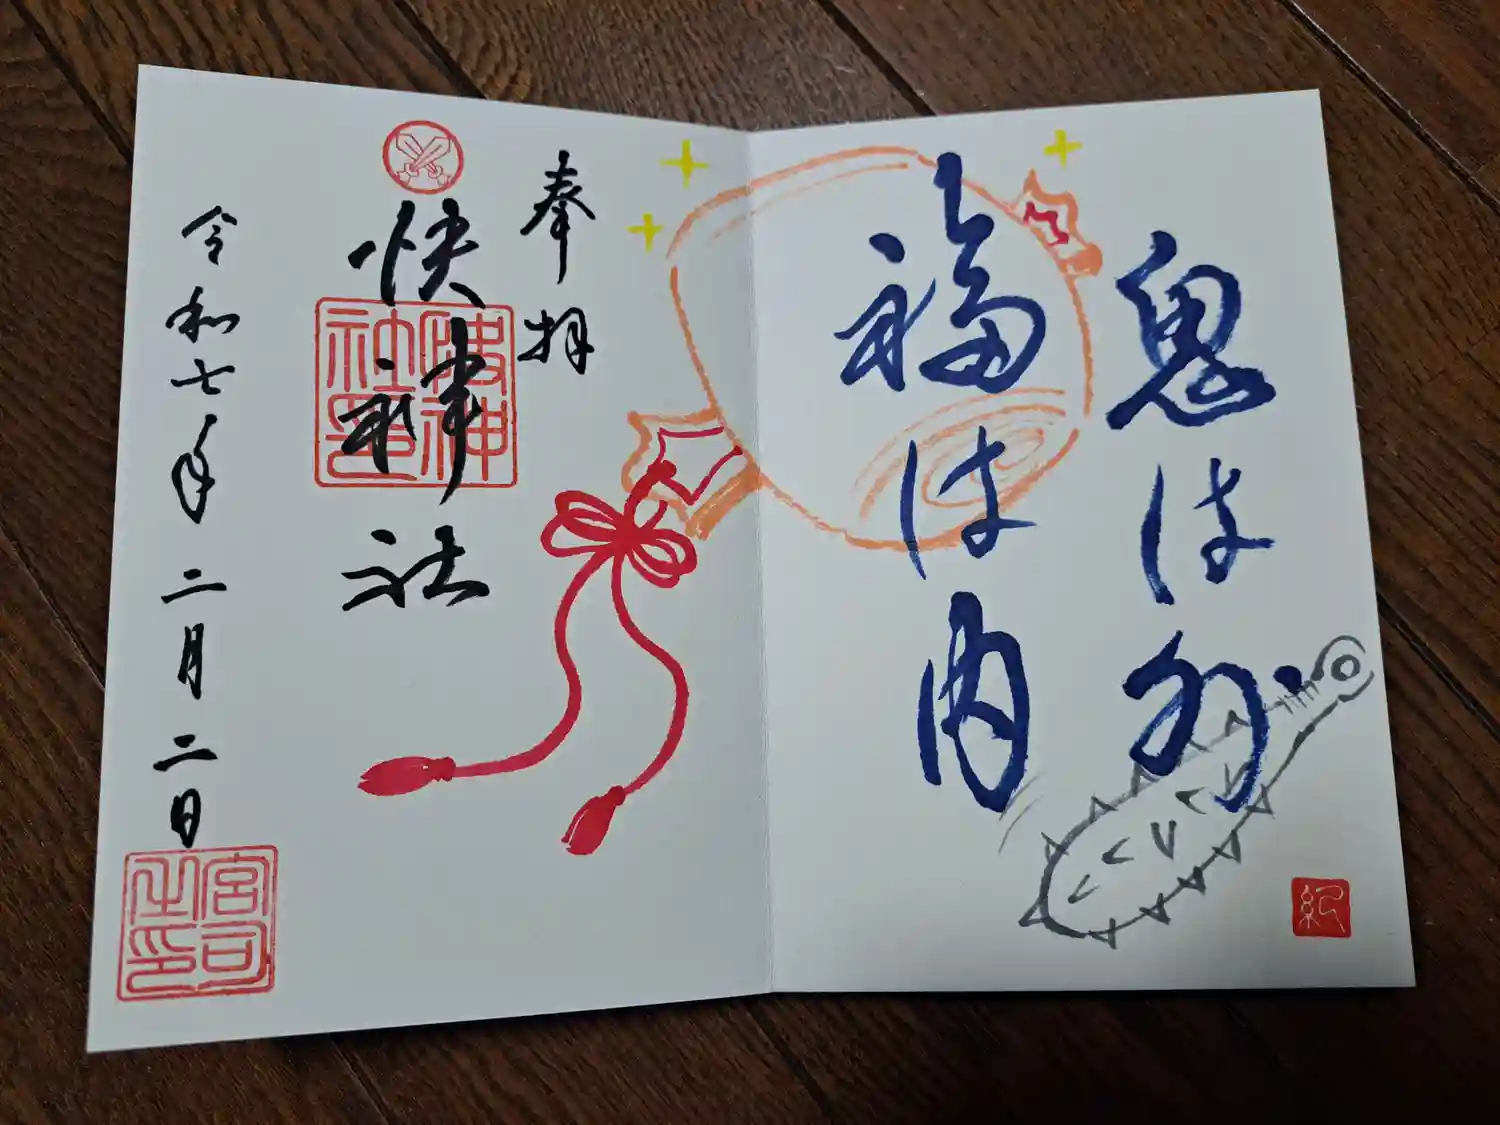 鬼は外
福は内
紀
奉拝
快神社
快神社印
令和七年二月二日
宮司之印